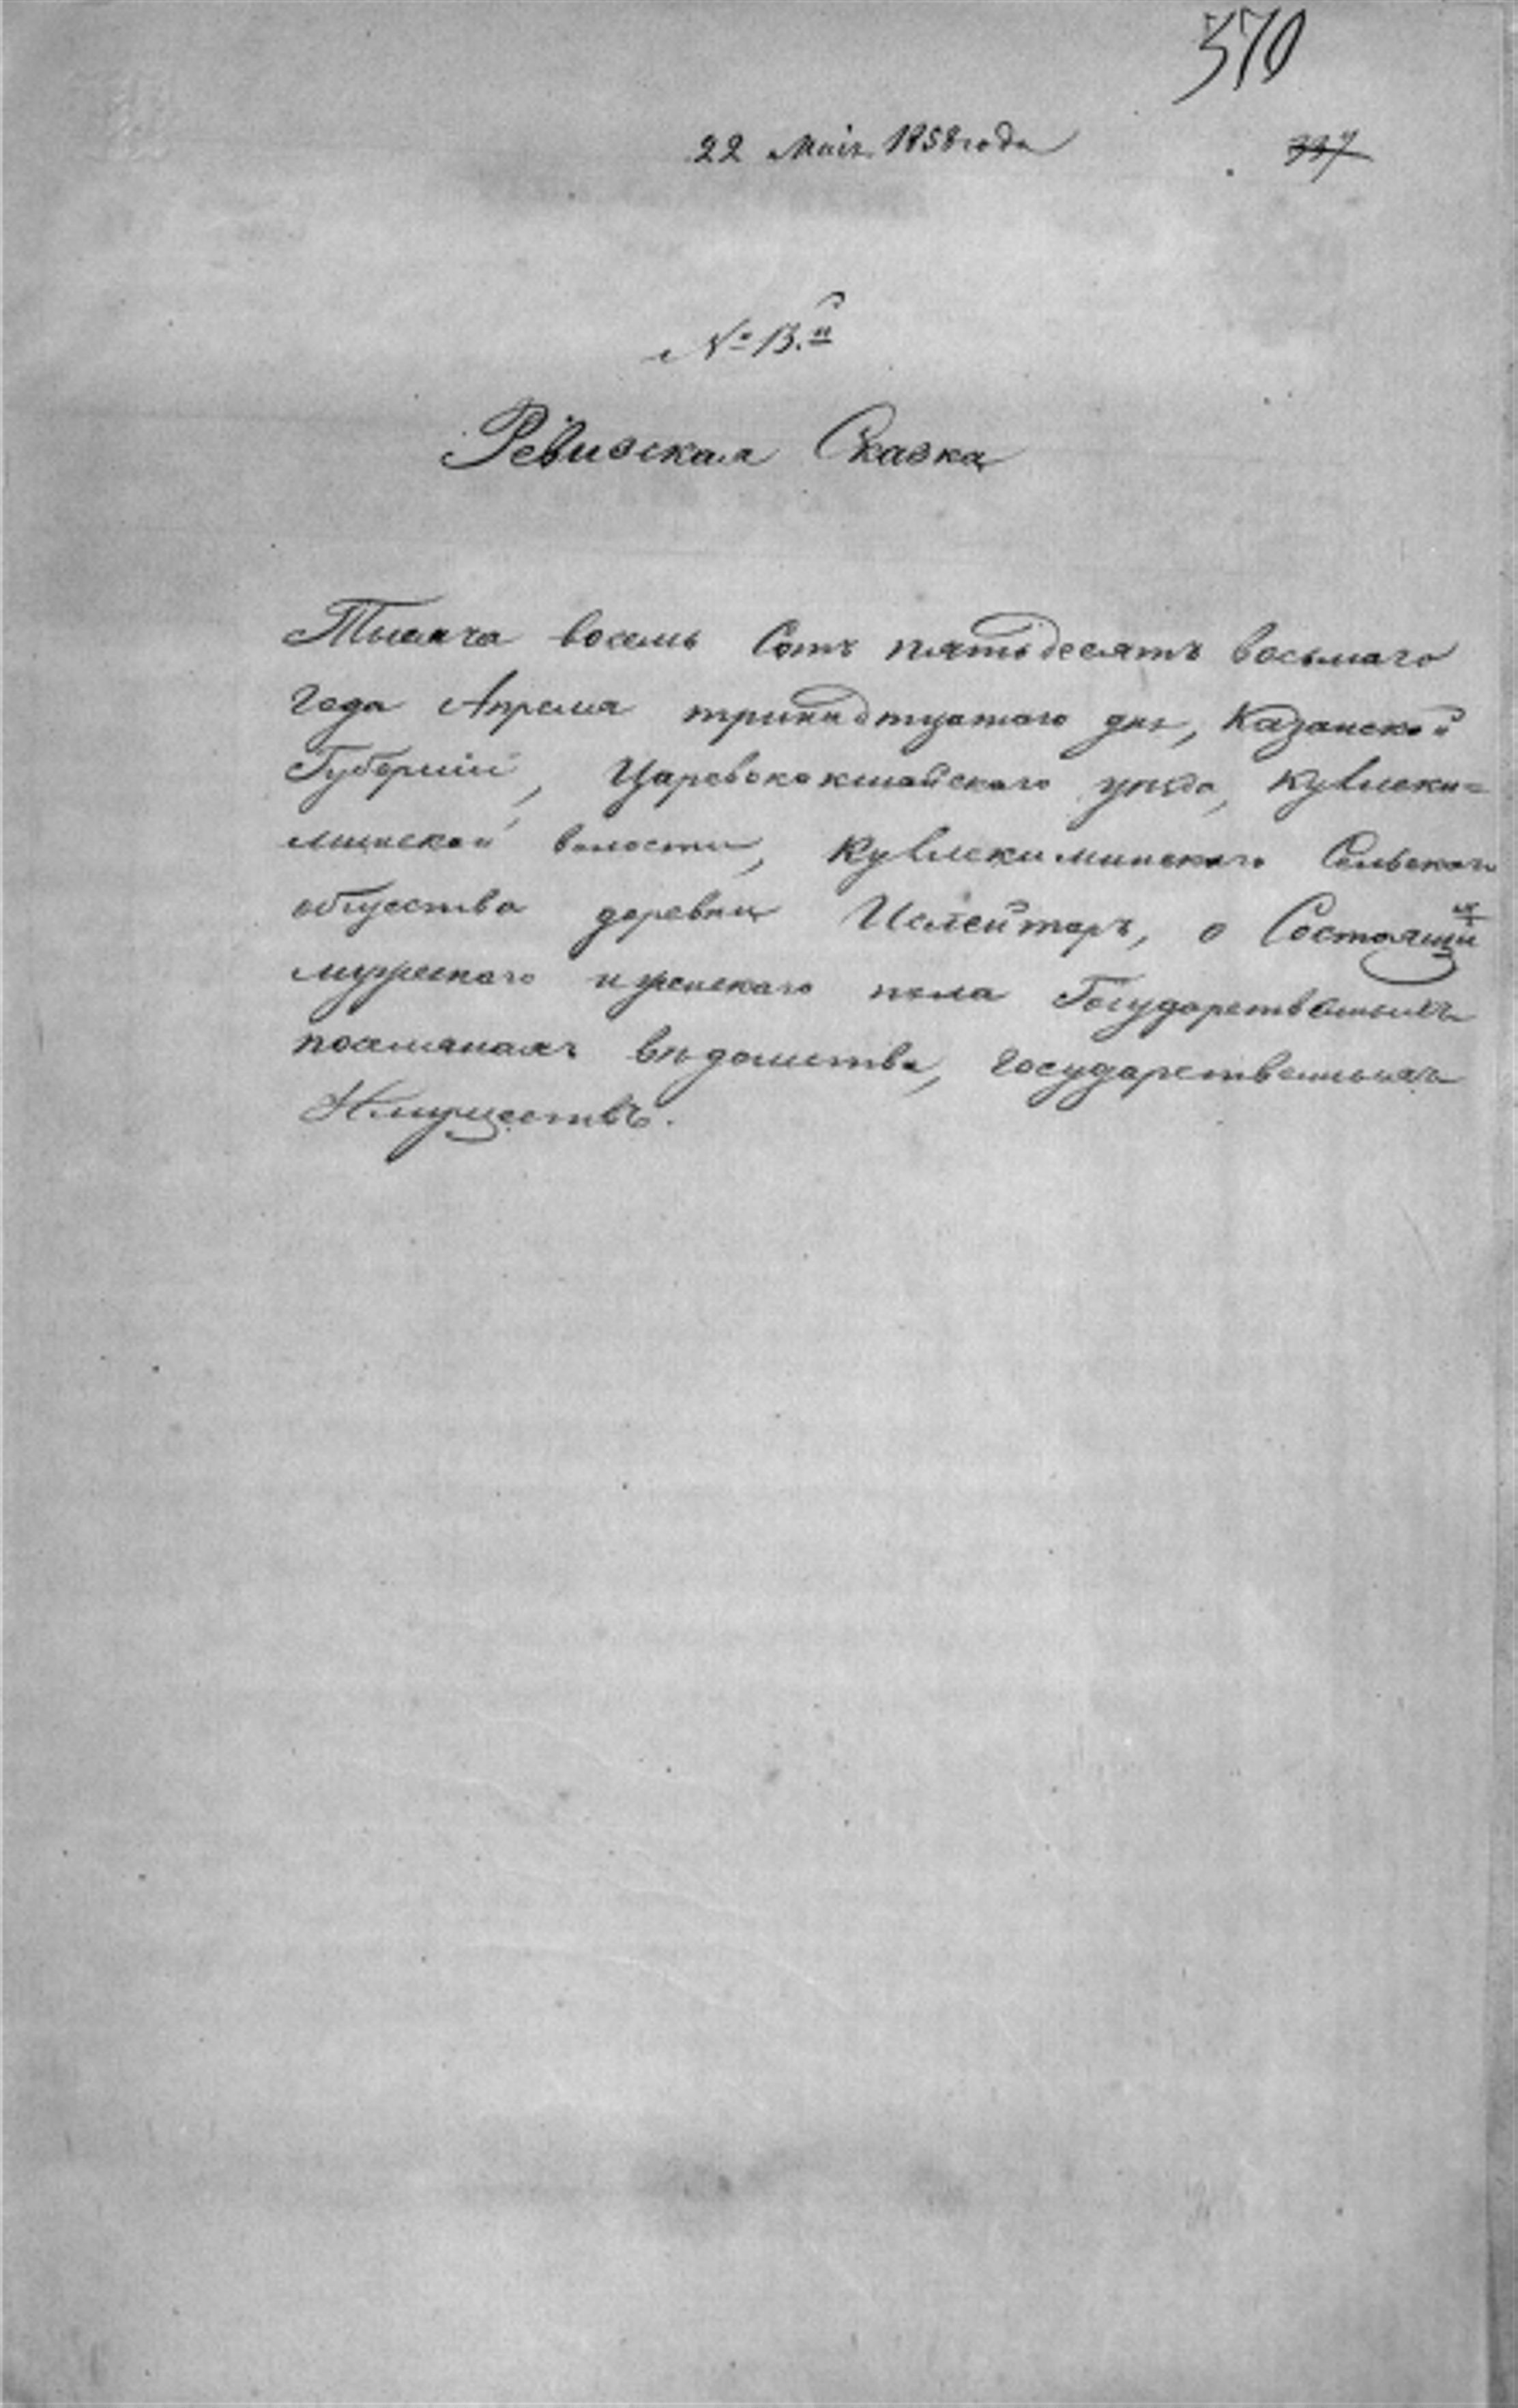 570
22 Маія 1858 года
337
№ 13.й
Ревизская Сказка
Тысяча восемь Сотъ пятьдесятъ восьмаго
года Апреля тринадтцатаго дня, Казанской
Губерніи, Царевококшайскаго уезда, Кулleки=
минской волости, Кулleкиминскаго Сельскаго
общества деревни Ислейтаръ, о Состоящихъ
мужескаго и женскаго пола Государственныхъ
поселянахъ вѣдомства, государственныхъ
Имуществъ.